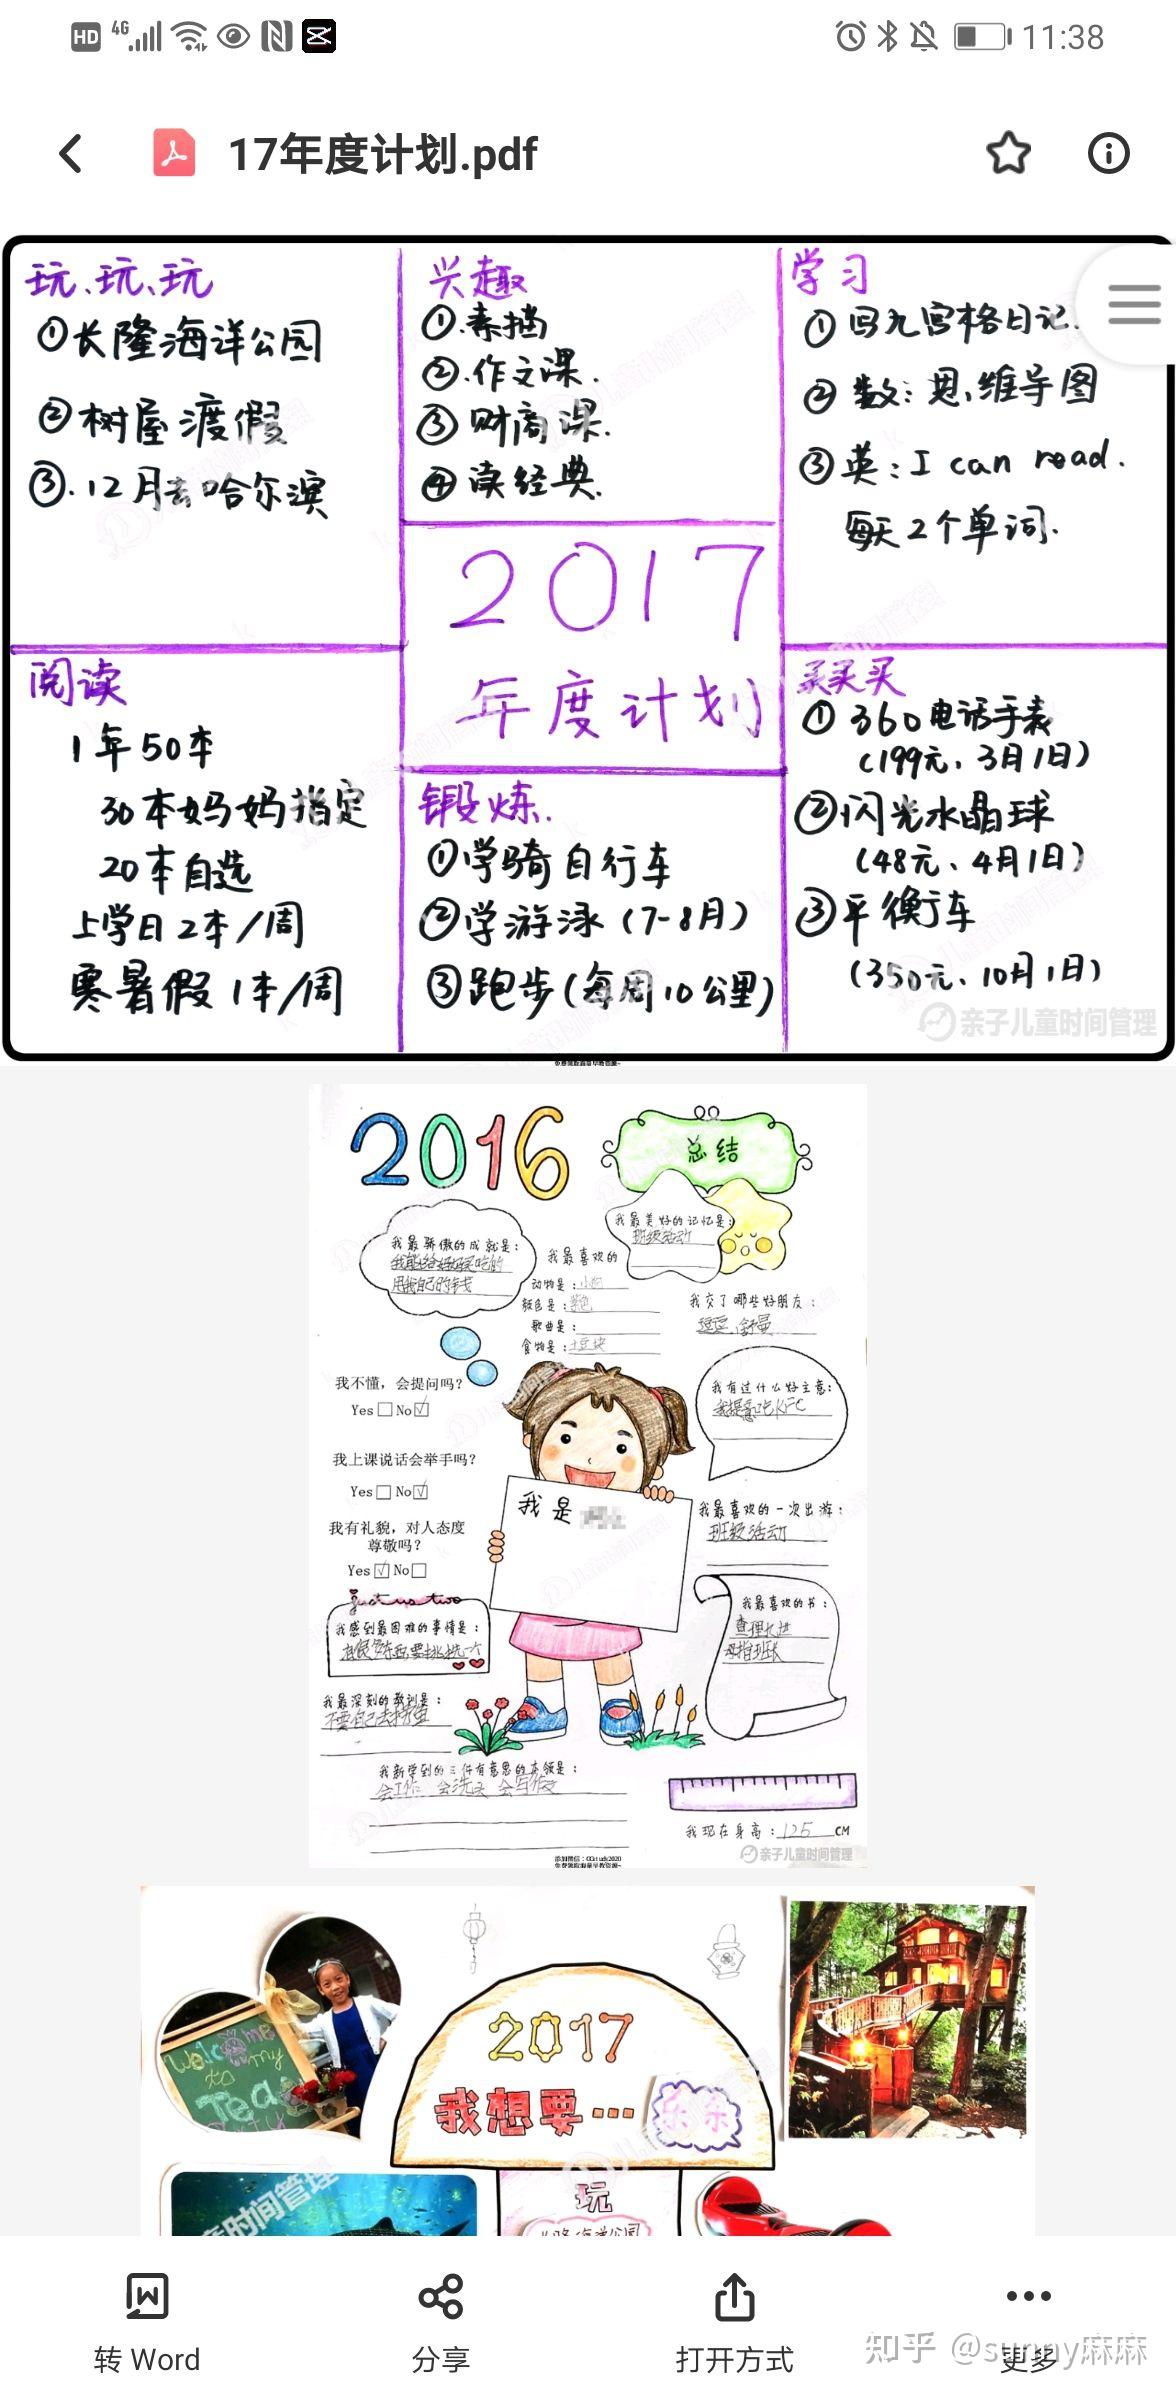 HD 4G 11:38
17年度计划.pdf
玩、玩、玩
①长隆海洋公园
②树屋渡假
③.12月去哈尔滨
兴趣
①.素描
②.作文课.
③财商课.
④读经典.
学习
①写九宫格日记.
②数:思维导图
③英:I can read.
每天2个单词.
2017
年度计划
阅读
1年50本
30本妈妈指定
20本自选
上学日2本/周
寒暑假1本/周
锻炼.
①学骑自行车
②学游泳(7-8月)
③跑步(每周10公里)
买买买
①360电话手表
(199元、3月1日)
②闪光水晶球
(48元、4月1日)
③平衡车
(350元、10月1日)
亲子儿童时间管理
2016
总结
我最骄傲的成就是:
我能给妈妈买吃的
用我自己的钱
我最美好的记忆是:
班级活动
我最喜欢的
动物是:小狗
颜色是:紫色
歌曲是:
食物是:土豆块
我交了哪些好朋友:
我不懂,会提问吗?
Yes□No☑
我有过什么好主意:
我提意吃KFC
我上课说话会举手吗?
Yes□No☑
我是
我有礼貌,对人态度
尊敬吗?
Yes☑No□
我最喜欢的一次出游:
班级活动
just us two
我感到最困难的事情是:
有很多东西要挑选一个
我最喜欢的书:
查理九世
拇指班长
我最深刻的教训是:
不要自己去捞鱼
我新学到的三件有意思的本领是:
会工作 会洗头 会写作文
我现在身高:125CM
亲子儿童时间管理
2017
我想要…乐乐
Welcome
to my
Tea
玩
长隆海洋公园
转 Word
分享
打开方式
更多
知乎 @sunny麻麻